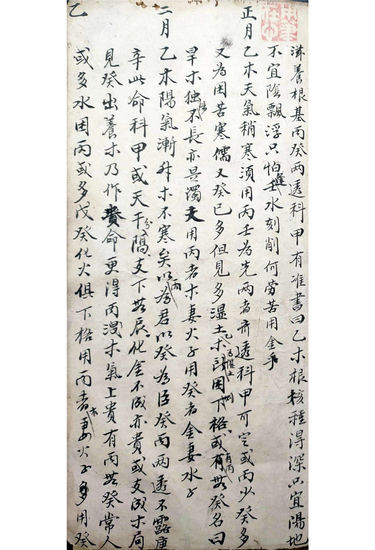 滋養根基丙癸兩透科甲有准書曰乙木根核種得深只宜陽地
不宜陰飄浮只怕逢壬水刻削何勞苦用金乎
正月 乙木天氣稍寒須用丙壬為先兩者齊透科甲可定或丙少癸多
又為困苦寒儒又癸已多但見多濕土木即困下格或有丙無癸名曰
旱木独陽不長亦是濁文用丙者木妻火子用癸者金妻水子
二月 乙木陽氣漸升木不寒矣以丙為君以癸為臣癸丙兩透不露庚
辛此命科甲或天干分隔支下無辰化金不成亦貴或支成木局
見癸出養木乃作貴命更得丙洩木氣上貴有丙無癸常人
或多水困丙或多戊癸化火俱下格用丙者木妻火子多用癸
乙